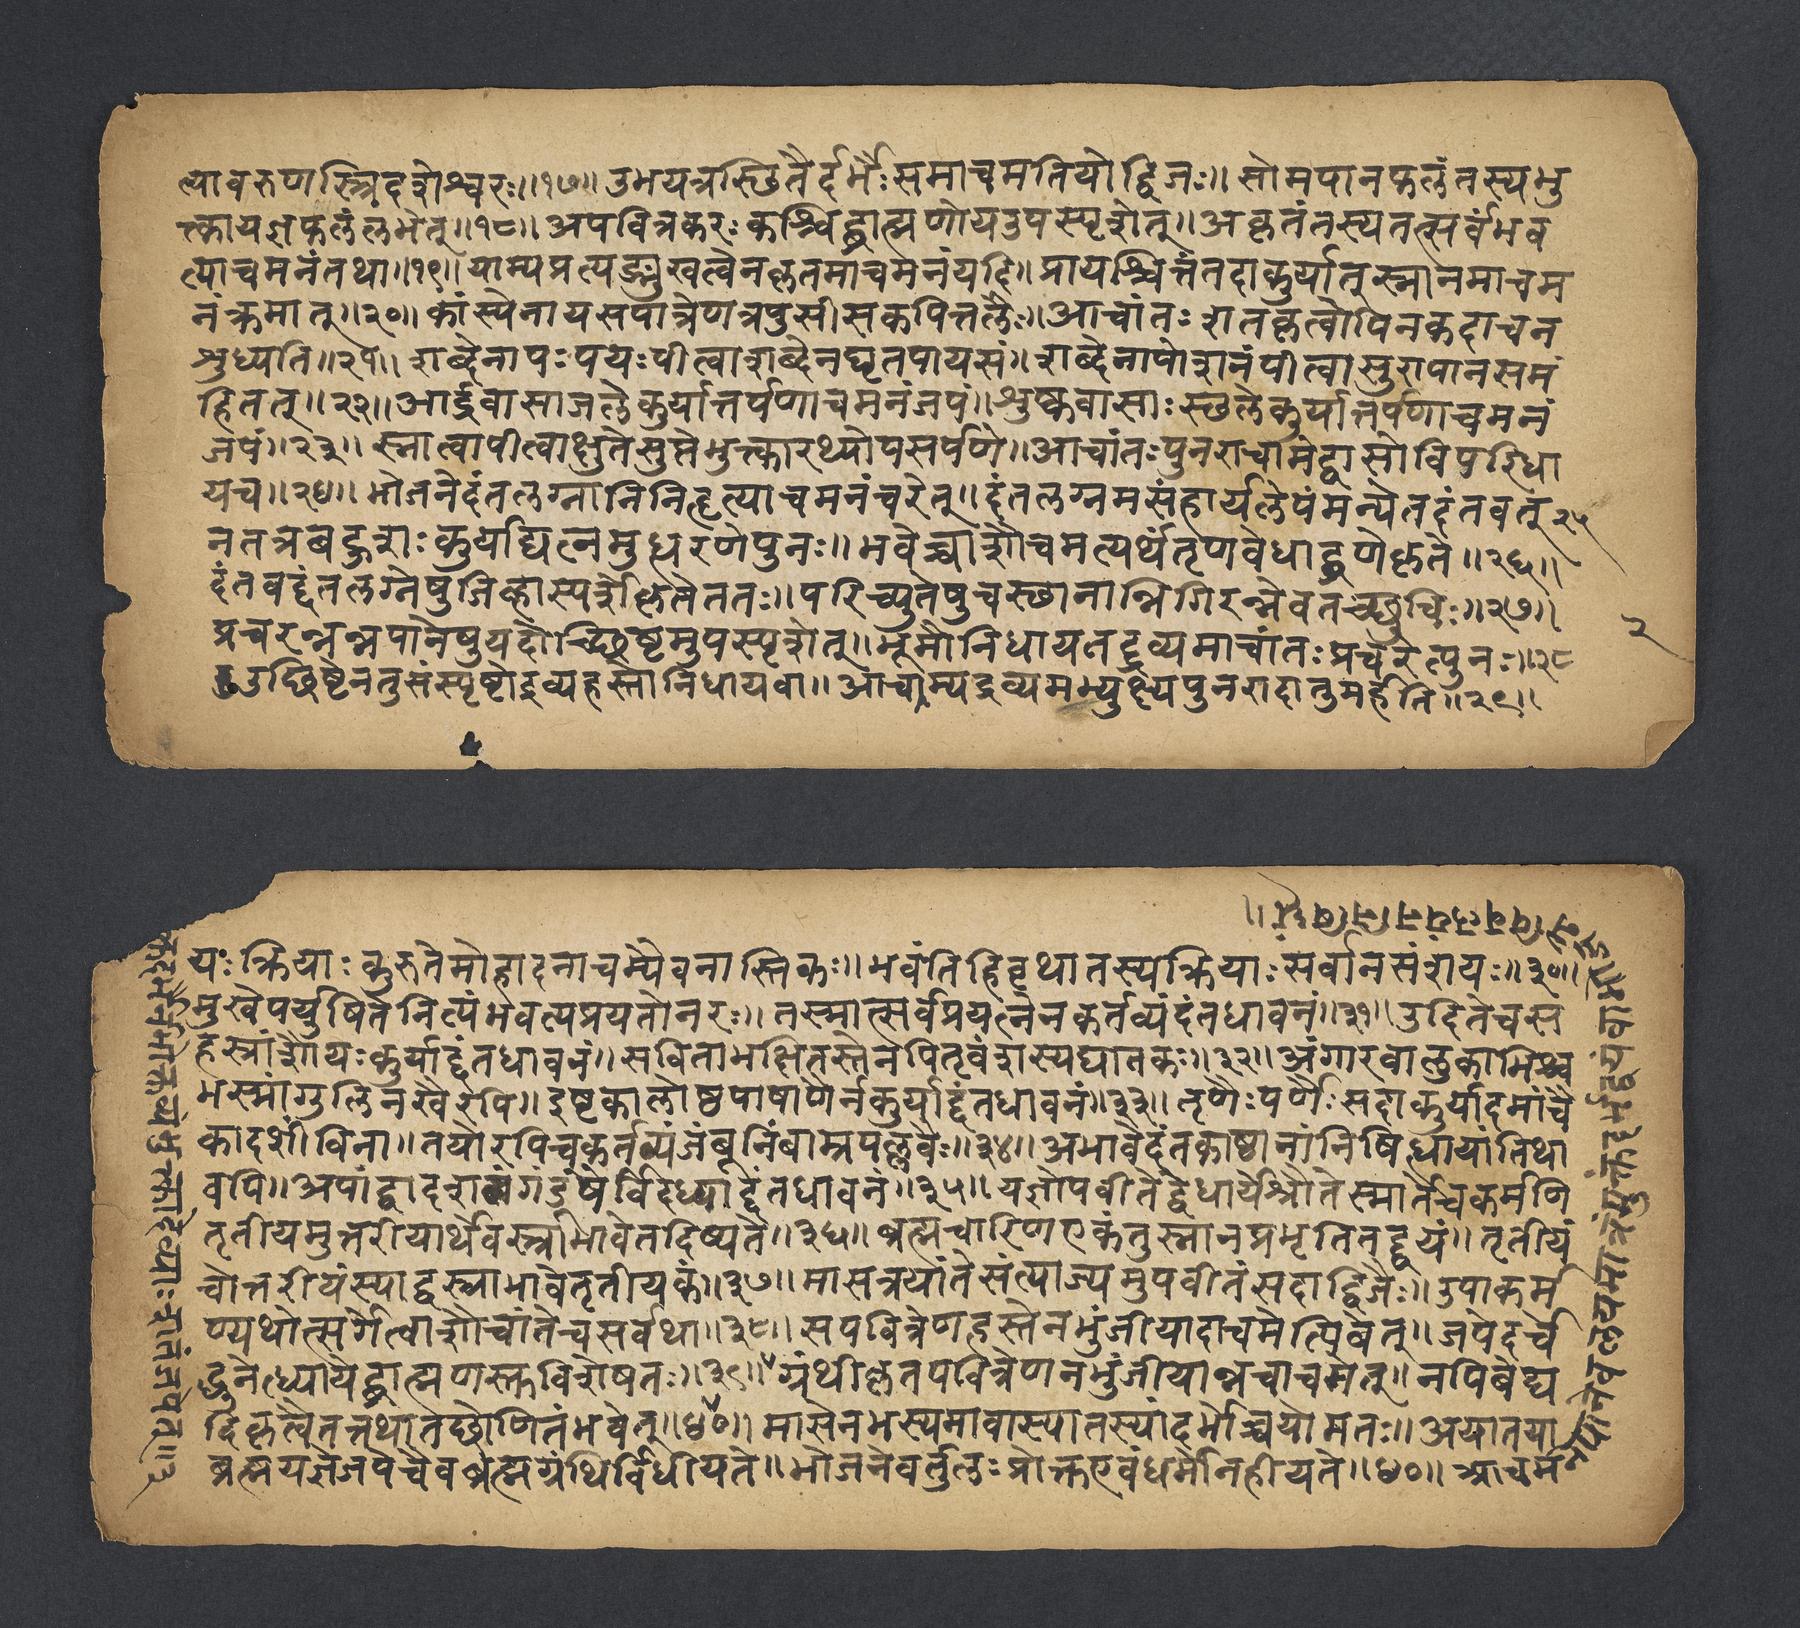 त्यावरुणस्त्रिदशेश्वरः॥१७॥उभयत्रस्छितैर्दर्भैःसमाचमतियोद्विजः॥सोमपानफलंतस्यभु
त्क्तायज्ञफलंलभेत्॥१८॥अपवित्रकरःकश्चिद्ब्राह्मणोयउपस्पृशेत्॥अकृतंतस्यतत्सर्वंभव
त्याचमनंतथा॥१९॥याम्यप्रत्यङ्मुखत्वेनकृतमाचमनंयदि॥प्रायश्चित्तंतदाकुर्यात्स्नानमाचम
नंक्रमात्॥२०॥कांस्येनायसपात्रेणत्रपुसीसकपित्तलैः॥आचांतःशतकृत्वोपिनकदाचन
शुध्यति॥२१॥शब्देनापःपयःपीत्वाशब्देनघृतपायसं॥शब्देनापोशनंपीत्वासुरापानसमं
हितत्॥२२॥आर्द्रवासाजलेकुर्यात्तर्पणाचमनंजपं॥शुष्कवासाःस्छलेकुर्यात्तर्पणाचमनं
जपं॥२३॥स्नात्वापीत्वाक्षुतेसुप्तेभुत्क्तारथ्योपसर्पणे॥आचांतःपुनराचामेद्वासोविपरिधा
यच॥२४॥भोजनेदंतलग्नानिनिर्हृत्याचमनंचरेत्॥दंतलग्नमसंहार्यलेपंमन्येतदंतवत्२५
नतत्रबहुशःकुर्याद्यत्नमुद्धरणेपुनः॥भवेच्चाशौचमत्यर्थंतृणवेधाद्व्रणेकृते॥२६॥
दंतवद्दंतलग्नेषुजिव्हास्पर्शेकृतेततः॥परिच्युतेषुचस्छानान्निगिरन्नेवतच्छुचिः॥२७॥
प्रचरन्नन्नपानेषुयदोच्छिष्टमुपस्पृशेत्॥भूमौनिधायतद्द्रव्यमाचांतःप्रचरेत्पुनः॥२८
उच्छिष्टेनतुसंस्पृष्टोद्रव्यहस्तोनिधायवा॥आचाम्यद्रव्यमभ्युक्ष्यपुनरादातुमर्हति॥२९॥
२
यःक्रियाःकुरुतेमोहादनाचम्यैवनास्तिकः॥भवंतिहिवृथातस्यक्रियाःसर्वानसंशयः॥३०॥
मुखेपर्युषितेनित्यंभवत्यप्रयतोनरः॥तस्मात्सर्वप्रयत्नेनकर्तव्यंदंतधावनं॥३१॥उदितेचस
हस्त्रांशौयःकुर्याद्दंतधावनं॥सविताभक्षितस्तेनपितृवंशस्यघातकः॥३२॥अंगारवालुकाभिश्च
भस्मांगुलिनखैरपि॥इष्टकालोष्ठपाषाणैर्नकुर्याद्दंतधावनं॥३३॥तृणैःपर्णैःसदाकुर्यादमांचै
कादशींविना॥तयोरपिचकर्तव्यंजंबूनिंबाम्रपल्लवैः॥३४॥अभावेदंतकाष्ठानांनिषिद्धायांतिथा
वपि॥अपांद्वादशगंडूषैर्विदध्याद्दंतधावनं॥३५॥यज्ञोपवीतेद्वेधार्येश्रौतेस्मार्तेचकर्मणि
तृतीयमुत्तरीयार्थेवस्त्राभावेतदिष्यते॥३६॥ब्रह्मचारिणएकंतुस्नानप्रभृतितद्द्वयं॥तृतीयं
चोत्तरीयंस्याद्वस्त्राभावेतृतीयकं॥३७॥मासत्रयांतेसंत्याज्यमुपवीतंसदाद्विजैः॥उपाकर्म
ण्यथोत्सर्गेत्वाशौचांतेचसर्वथा॥३८॥सपवित्रेणहस्तेनभुंजीयादाचमेत्पिबेत्॥जपेदर्चे
द्धुनेध्यायेद्ब्राह्मणस्तविशेषतः॥३९॥ग्रंथीकृतपवित्रेणनभुंजीयान्नचाचमेत्॥नपिबेद्य
दिकृत्वैतत्तथातच्छोणितंभवेत्॥४०॥मासेनभस्यमावास्यातस्यांदर्भोच्चयोमतः॥अयातया
ब्रह्मयज्ञेजपेचैवब्रह्मग्रंथिर्विधीयते॥भोजनेवर्तुलःप्रोक्तएवंधर्मोनहीयते॥४०॥